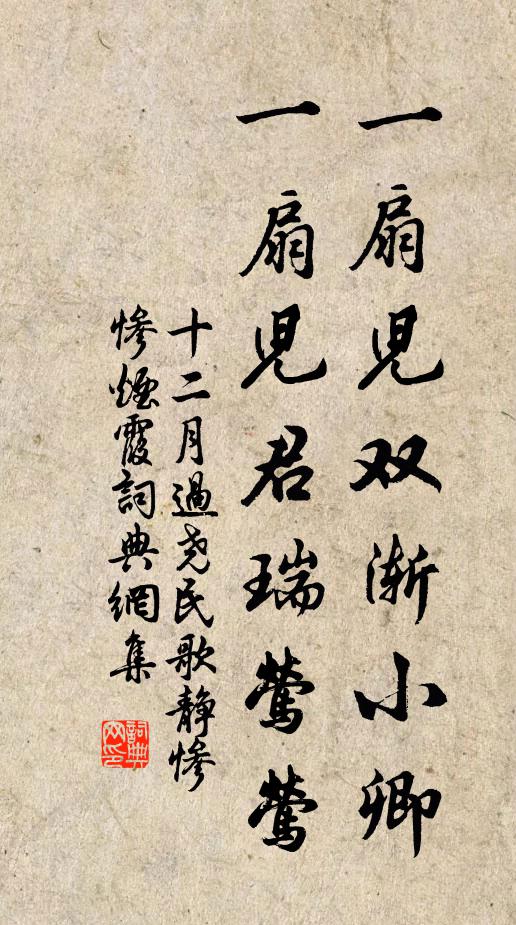 一扇児双渐小卿
一扇児君瑞莺莺
十二月過尧民歌静惨
惨煙霞詞典網集
詞典